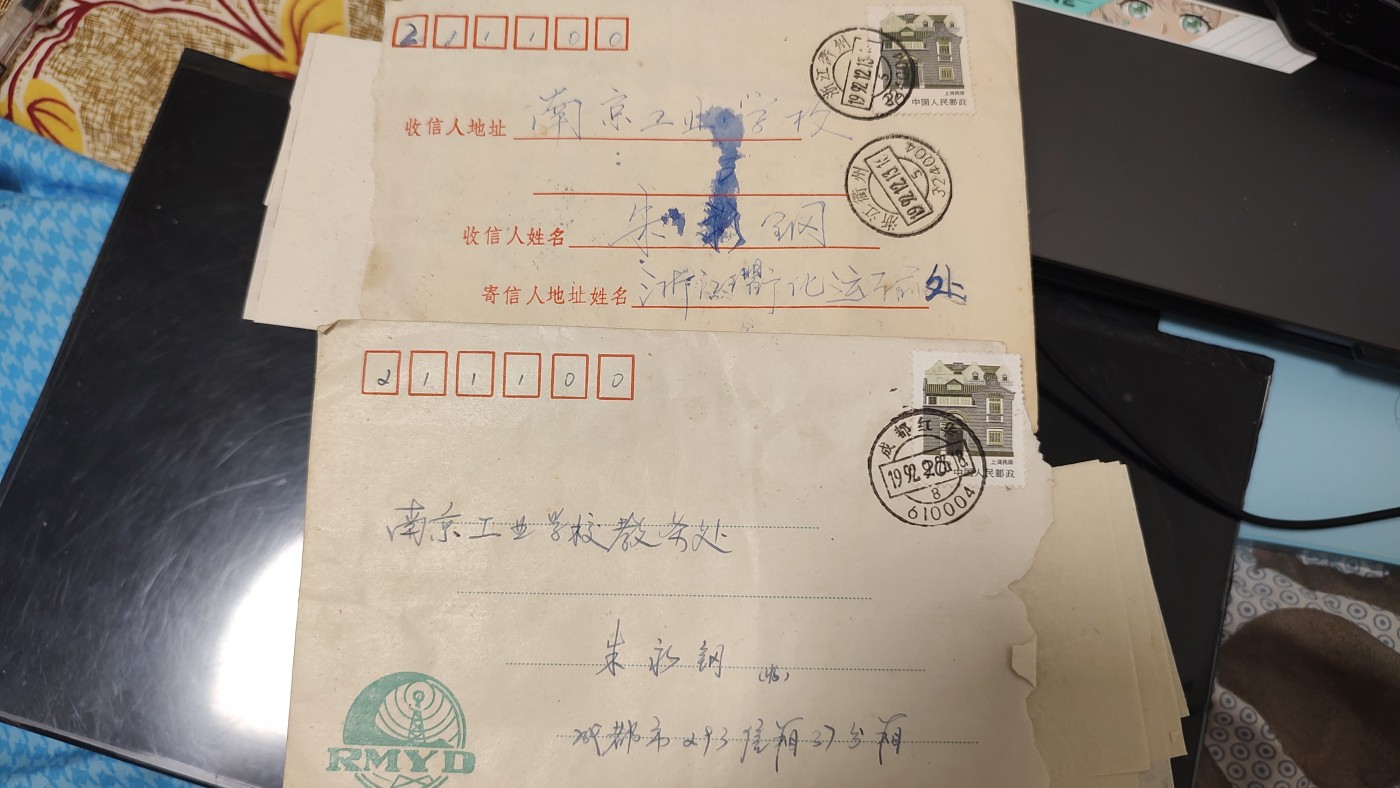 211100
浙江衢州
1992.12.13
5
上海民居
中国人民邮政
收信人地址 南京工业学校
浙江衢州
1992.12.13
5
324004
收信人姓名 朱永钢
寄信人地址姓名 浙江衢化运输处
211100
上海民居
中国人民邮政
成都红
1992
8
610004
南京工业学校教务处
朱永钢 (收)
成都市293信箱37分箱
RMYD